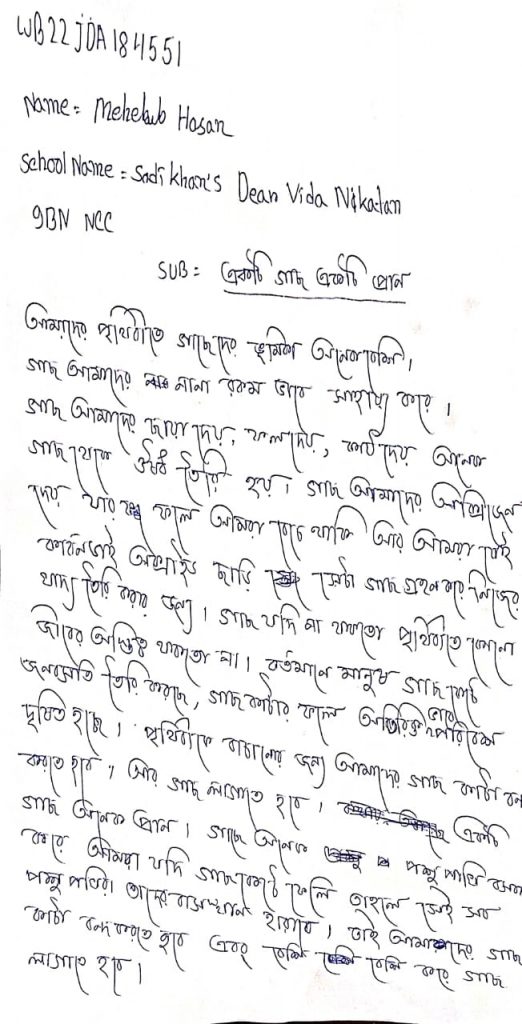 WB22JDA184551
Name = Mehebub Hasan
School Name = Sadikhan's Dear Vida Nikatan
9BN NCC
SUB = একটি গাছ একটি প্রান
আমাদের পৃথিবীতে গাছেদের ভূমিকা অনেক বেশি।
গাছ আমাদের নানা রকম ভাবে সাহায্য করে।
গাছ আমাদের ছায়া দেয়, ফল দেয়, কাঠ দেয় অনেক
গাছ থেকে ঔষধ তৈরি হয়। গাছ আমাদের অক্সিজেন
দেয় যার ফলে আমরা বেঁচে থাকি আর আমরা যেই
কার্বন ডাই অক্সাইড ছাড়ি সেটা গাছ গ্রহন করে নিজের
খাদ্য তৈরি করার জন্য। গাছ যদি না থাকতো পৃথিবীতে কোনো
জীবের অস্তিত্ব থাকতো না। বর্তমানে মানুষ গাছ কেটে
জনবসতি তৈরি করছে, গাছ কাটার ফলে অতিরিক্ত ভাবে পরিবেশ
দূষিত হচ্ছে। পৃথিবীকে বাচানোর জন্য আমাদের গাছ কাটা বন্ধ
করতে হবে, আর গাছ লাগাতে হবে। একটি
গাছ অনেক প্রান। গাছে অনেক পশু পাখি বসবাস
করে আমরা যদি গাছ কেটে ফেলি তাহলে সেই সব
পশু পাখিরা তাদের বাসস্থান হারাবে। তাই আমাদের গাছ
কাটা বন্দ করতে হবে এবং বেশি বেশি করে গাছ
লাগাতে হবে।